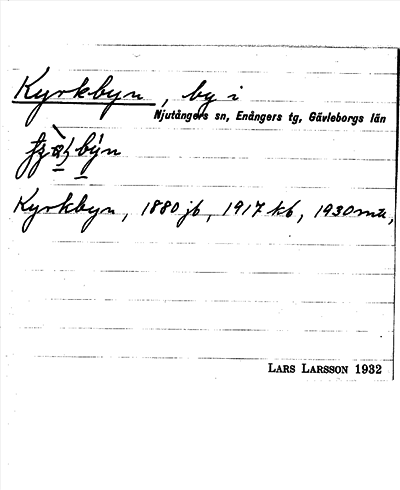 Kyrkbyn, by i
Njutångers sn, Enångers tg, Gävleborgs län
býn
Kyrkbyn, 1880 jb, 1917 kb, 1930 mtl,
LARS LARSSON 1932